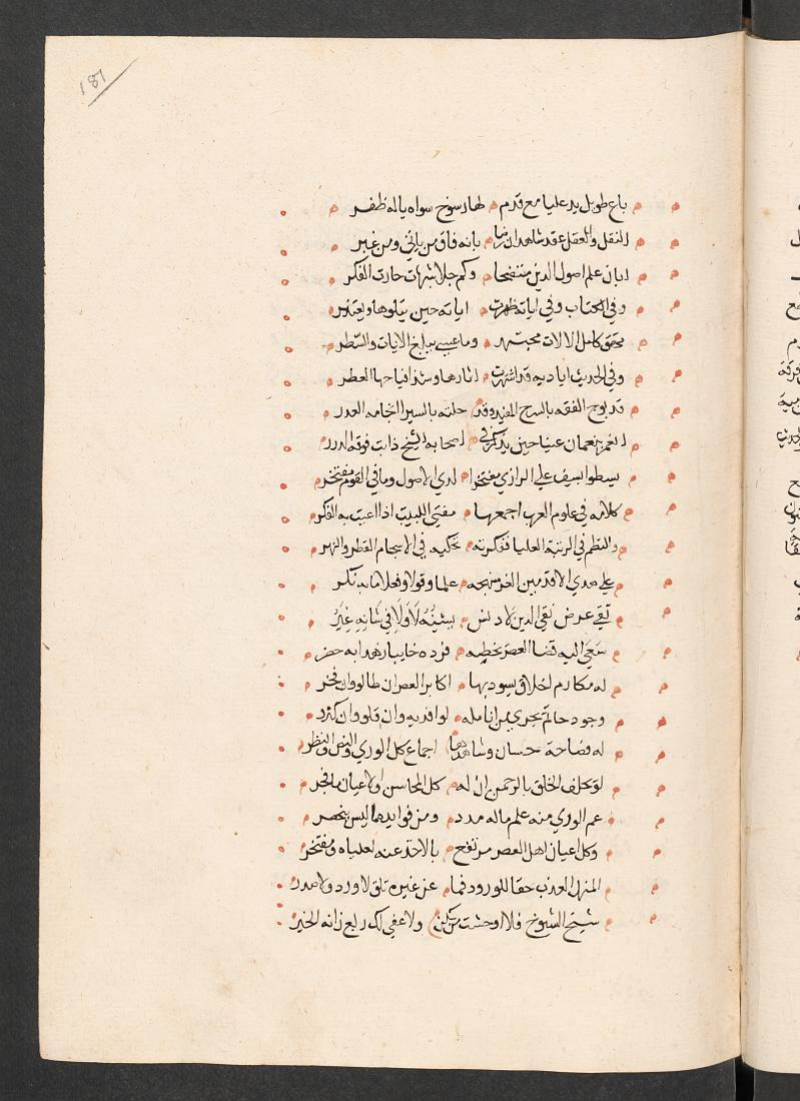 181
باع طويل يد عليا مع قدم لها رسوخ سواه ياله ظفر
النقل والعقل عقد شاهدان رضا بانه فاق من ياتي ومن غبر
ابان علم اصول الدين متضحا وكم جلا شبهات حارت الفكر
وفي الكتاب وفي اياته ظهرت اياته حين يتلوها ويعتبر
محقق كامل الالات مجتهد وما عسى يبلغ الابيات والسطر
وفي الحديث اياديه قد اشتهرت اثارها وشذا فياحها العطر
قد توج الفقه بالسح حلته
انعم بنعمان عينا حين يذكر في اصحابه الشيخ ذابت فوقه الدرر
يسطوا بسيف علي الرازي مفتخرا لدي الاصول وما في القوم مفتخر
كلامه في علوم العرب اجمعها مغني اللبيب اذا اعيت به الفكر
والنظم في الرتبة العليا ففكرته تحكيه في الانسجام القطر والنهر
علي هدي الاقدمين الغر منهجه علما وقولا وفعلا ما به نكر
نقي عرض تقي الدين لا دنس يشينه لا ولا في شانه غير
سعي اليه قضا العصر يخطبه فرده خايبا زهدا به حصر
له مكارم اخلاق يسود بها اكابر العصر ان طالوا وان فخروا
وجود حاتم يجري من انامله لوافديه وان قلوا وان كثروا
له فصاحة حسان وشاهدها اجماع كل الوري والنص والنظر
لو يحلف الخلق بالرحمن ان له كل المحاسن والاعيان ما فجروا
عم الوري منه علم ماله مدد ومن فوايدها ليس ينحصر
وكل اعيان اهل العصر مرتفع بالاخذ عنه لعلياه ومفتخر
المنهل العذب حقا للورود فما عن غيره تلق لا ورد ولا صدر
شيخ الشيوخ فلا اوحشت من سكن ولا عفي لك ربع زانه الخبر